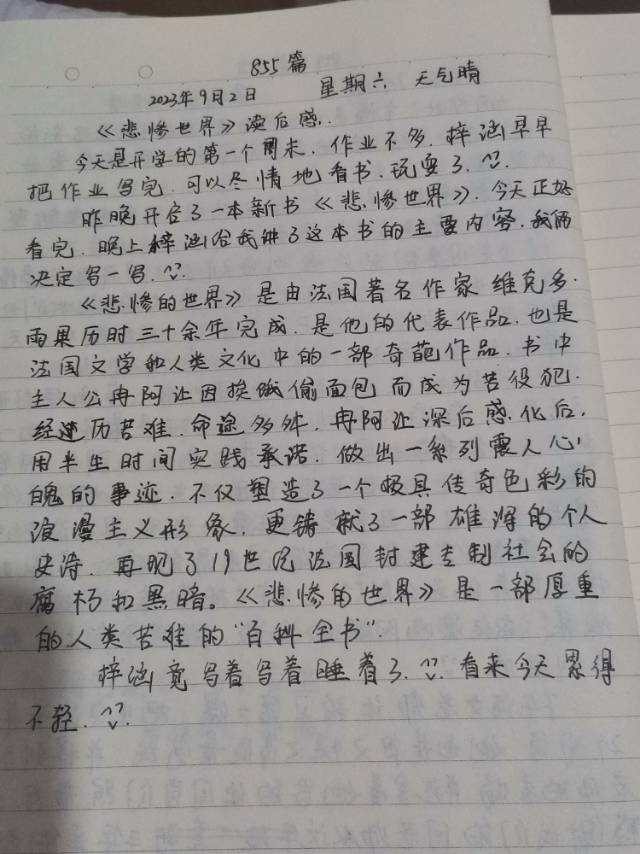 855篇
2023年9月2日 星期六 天气晴
《悲惨世界》读后感.
今天是开学的第一个周末.作业不多.梓涵早早
把作业写完.可以尽情地看书.玩耍了.^v^.
昨晚开启了一本新书《悲惨世界》.今天正好
看完.晚上梓涵给我讲了这本书的主要内容.我俩
决定写一写.^v^.
《悲惨的世界》是由法国著名作家维克多·
雨果历时三十余年完成.是他的代表作品.也是
法国文学和人类文化中的一部奇葩作品.书中
主人公冉阿让因挨饿偷面包而成为苦役犯.
经历苦难.命途多舛.冉阿让深后感化后.
用半生时间实践承诺.做出一系列震人心
魄的事迹.不仅塑造了一个极具传奇色彩的
浪漫主义形象.更铸就了一部雄浑的个人
史诗.再现了19世纪法国封建专制社会的
腐朽和黑暗。《悲惨的世界》是一部厚重
的人类苦难的“百科全书”.
梓涵竟写着写着睡着了.^v^.看来今天累得
不轻.^v^.